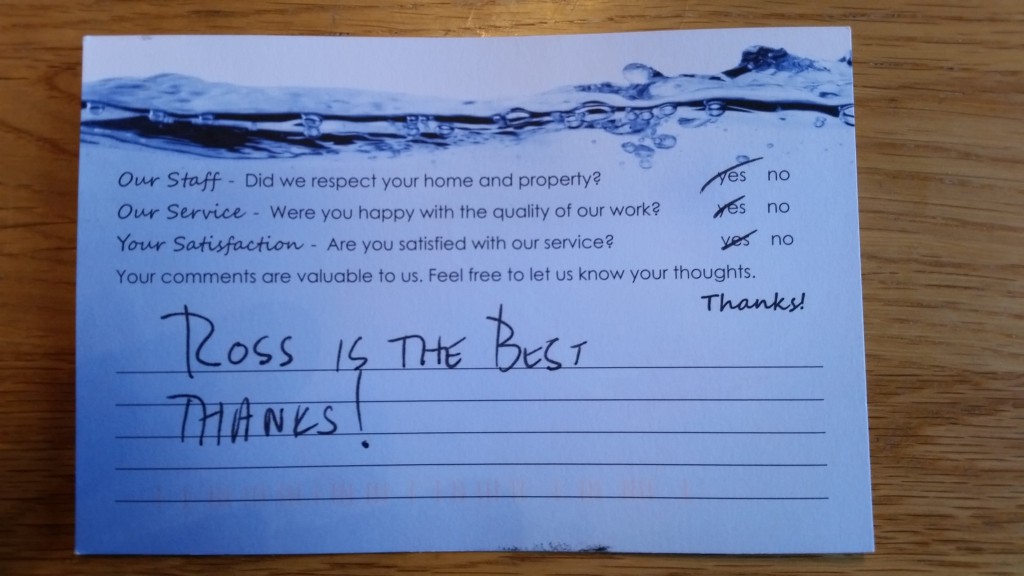 Our Staff - Did we respect your home and property? yes no
Our Service - Were you happy with the quality of our work? yes no
Your Satisfaction - Are you satisfied with our service? yes no
Your comments are valuable to us. Feel free to let us know your thoughts.
Thanks!
ROSS IS THE BEST
THANKS!